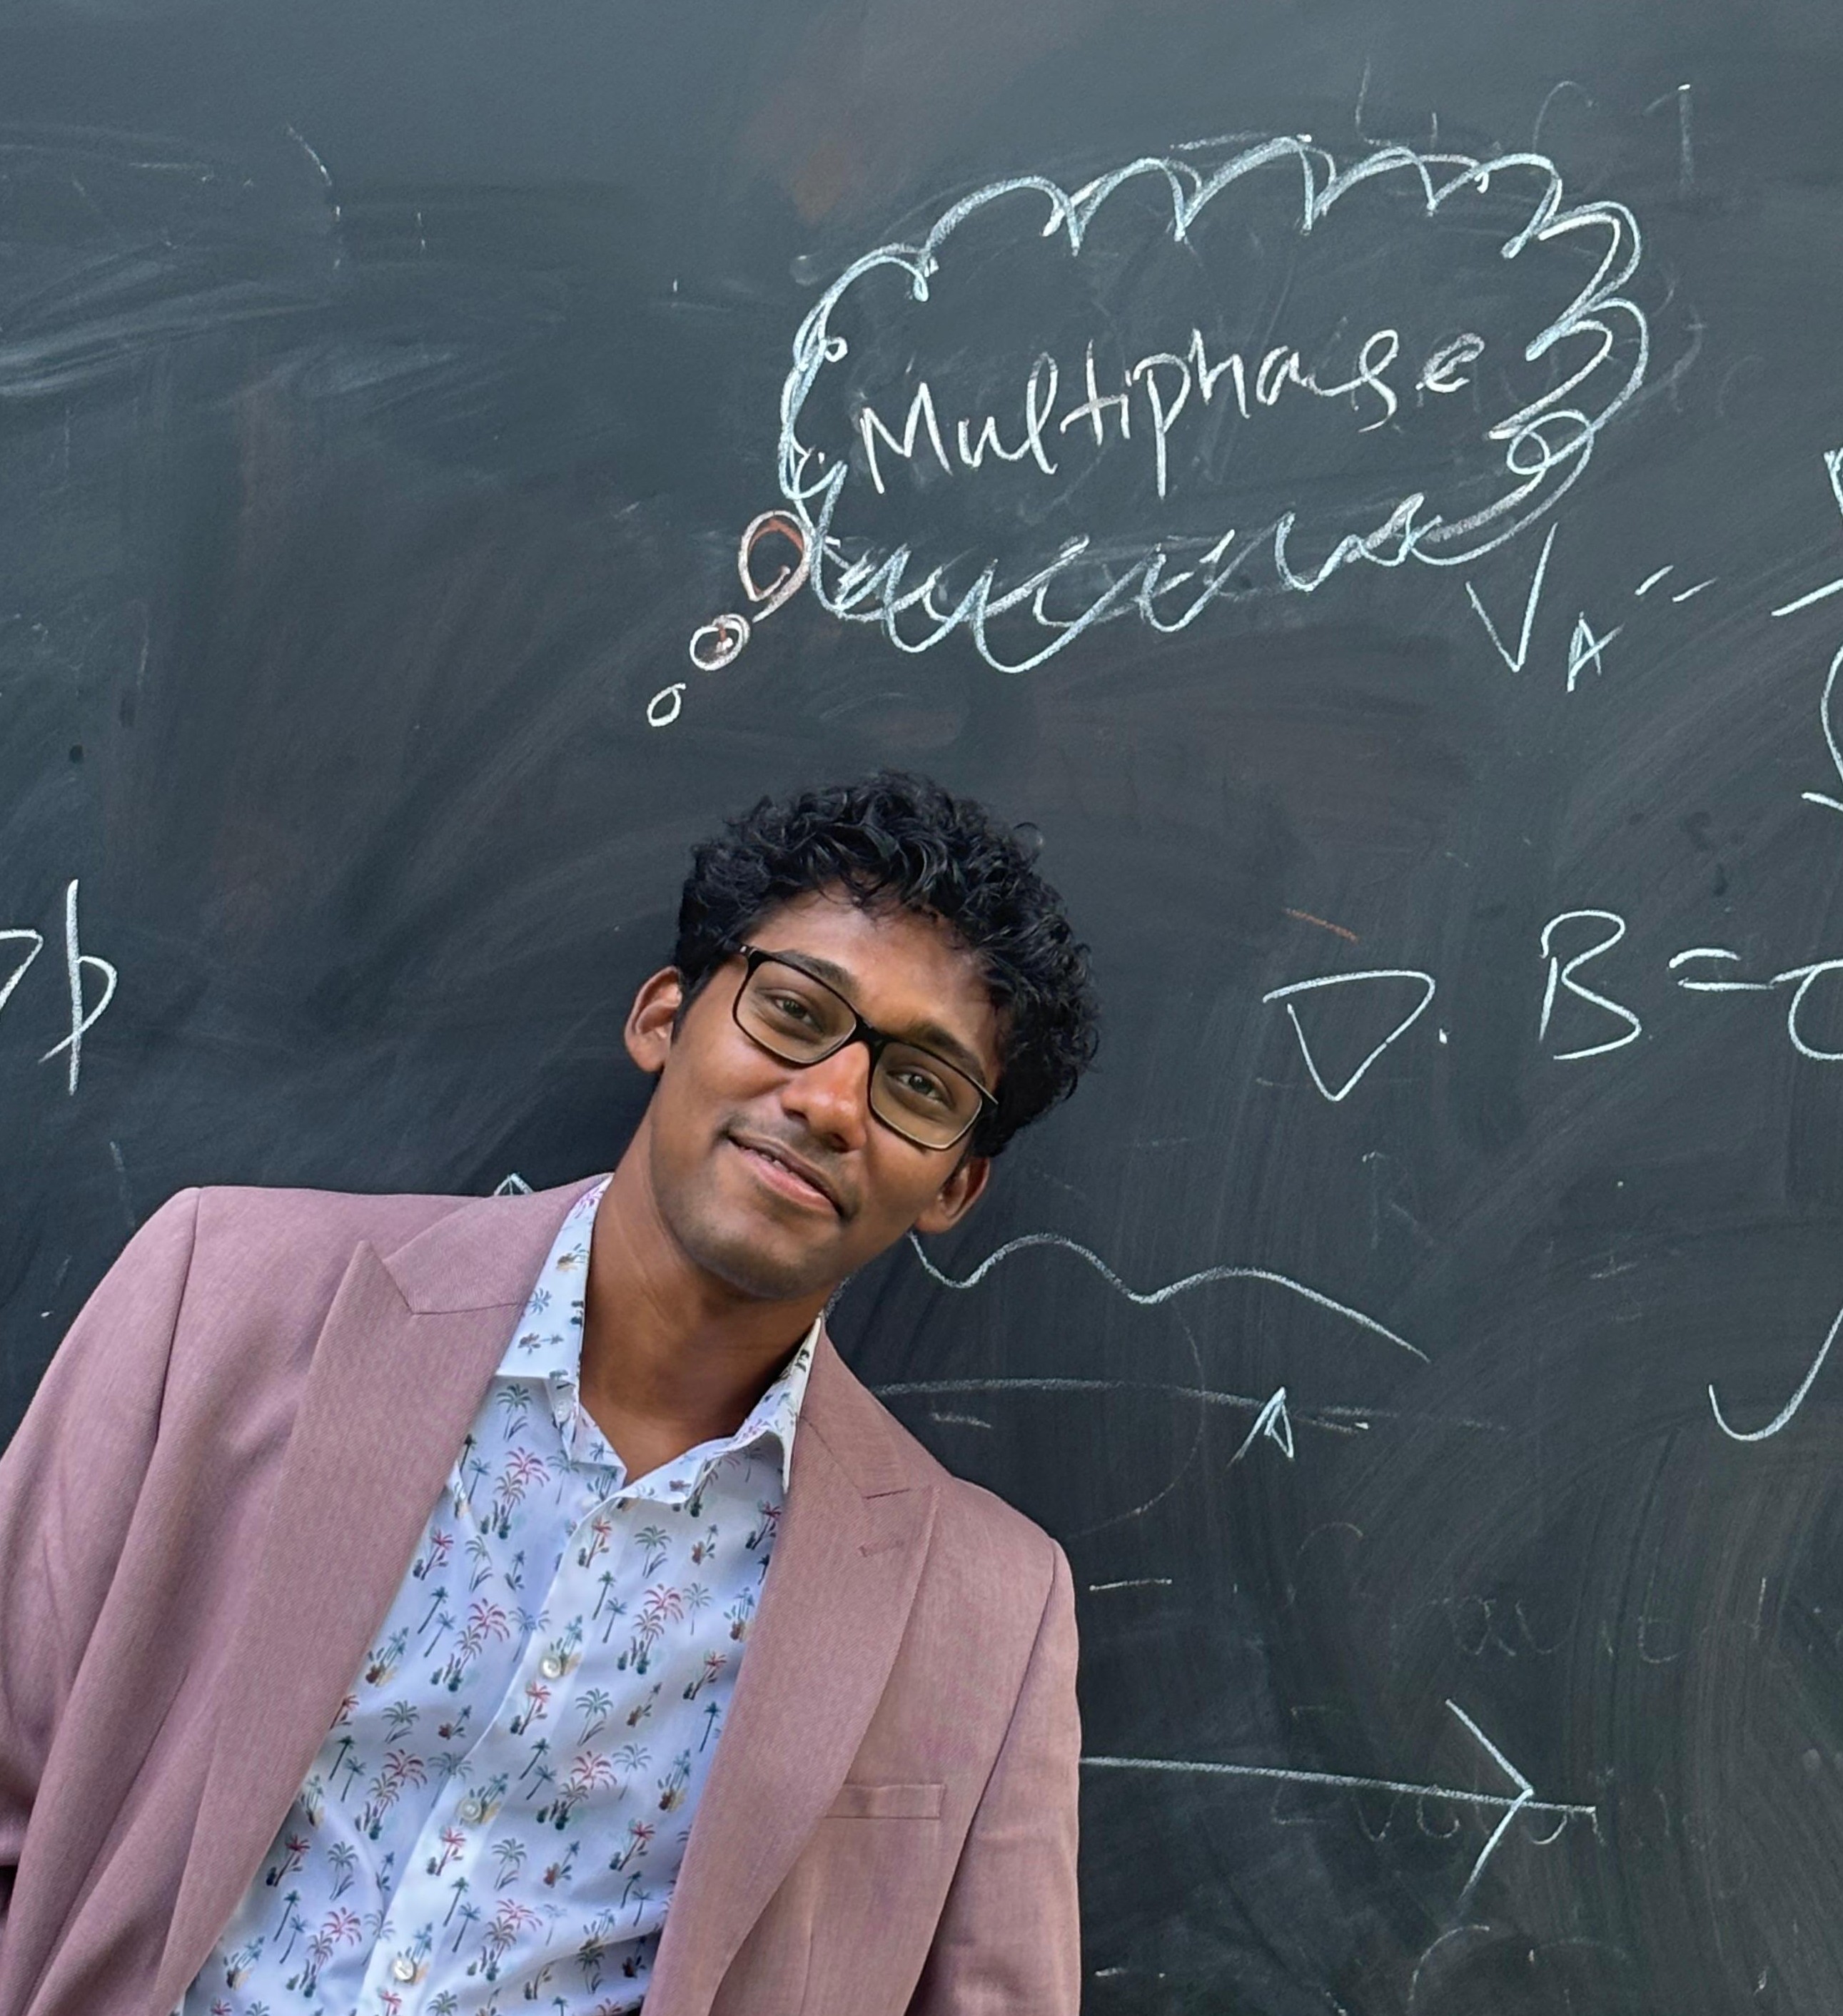 Multiphase
V_A =
∇p
∇. B = 0